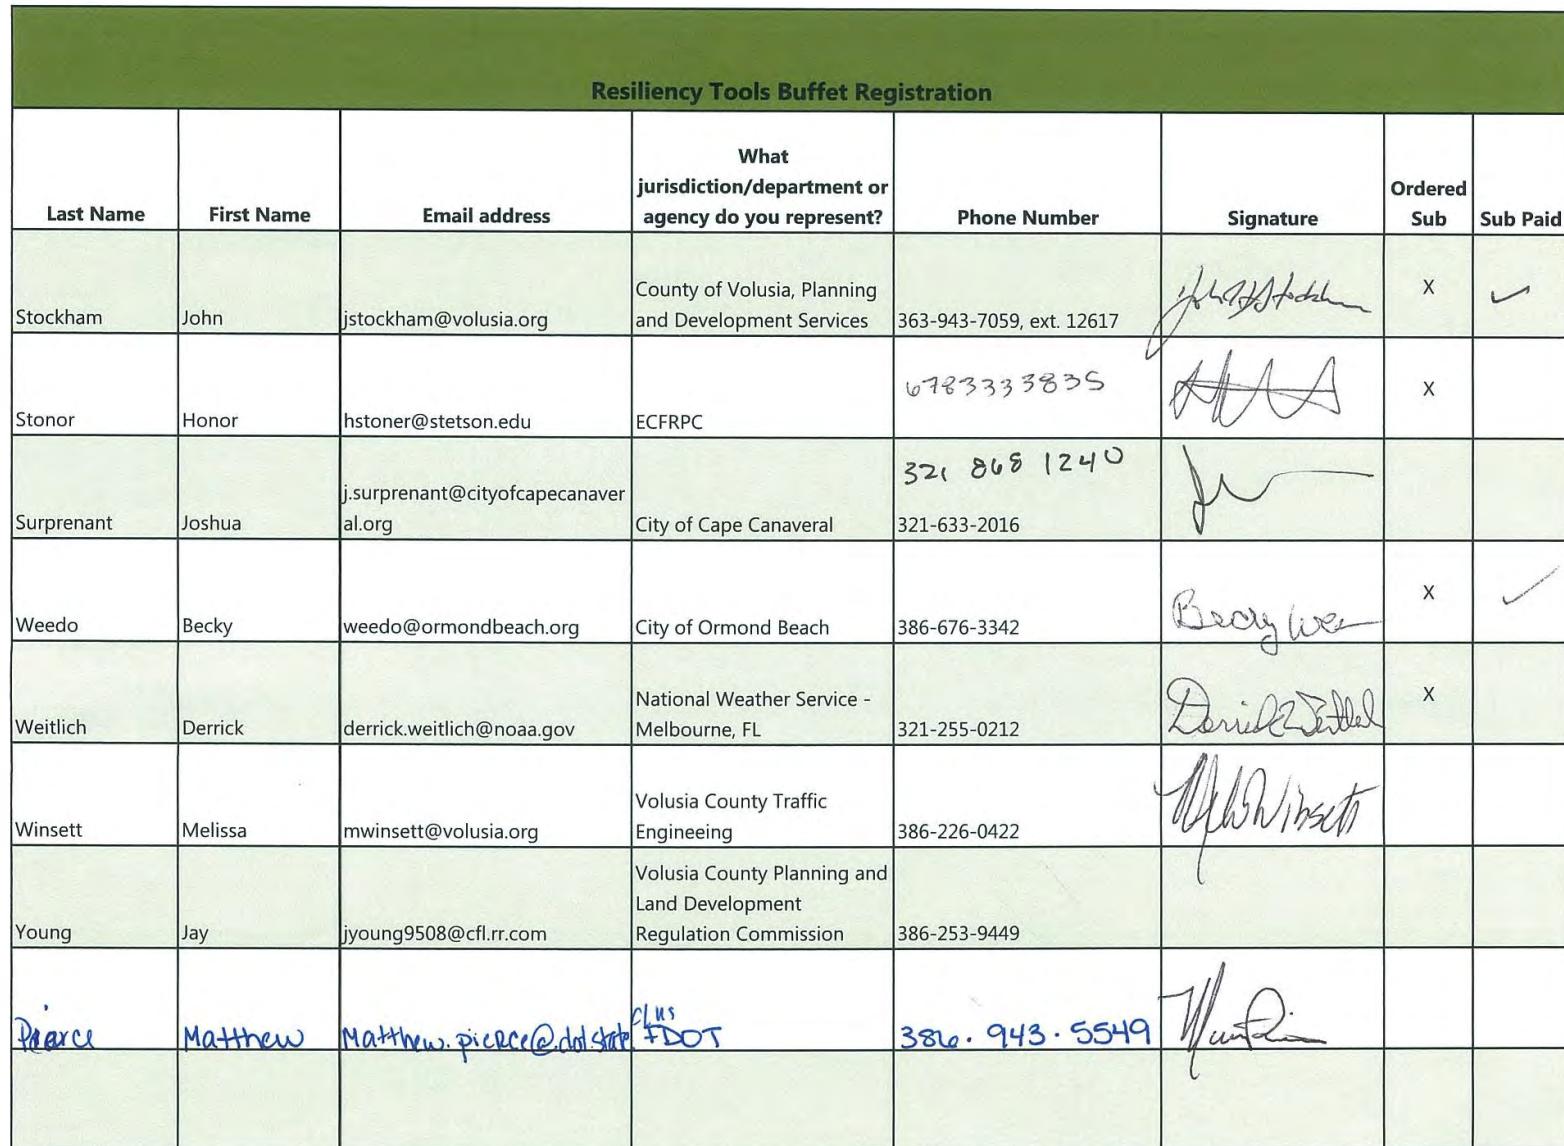 Resiliency Tools Buffet Registration
Last Name First Name Email address What jurisdiction/department or agency do you represent? Phone Number Signature Ordered Sub Sub Paid
Stockham John jstockham@volusia.org County of Volusia, Planning and Development Services 363-943-7059, ext. 12617 X ✓
Stonor Honor hstoner@stetson.edu ECFRPC 6783333835 X
Surprenant Joshua j.surprenant@cityofcapecanaveral.org City of Cape Canaveral 321 868 1240 321-633-2016
Weedo Becky weedo@ormondbeach.org City of Ormond Beach 386-676-3342 X ✓
Weitlich Derrick derrick.weitlich@noaa.gov National Weather Service - Melbourne, FL 321-255-0212 X
Winsett Melissa mwinsett@volusia.org Volusia County Traffic Engineeing 386-226-0422 Winsett
Young Jay jyoung9508@cfl.rr.com Volusia County Planning and Land Development Regulation Commission 386-253-9449
Pierce Matthew Matthew.pierce@dot.state. FDOT 386.943.5549